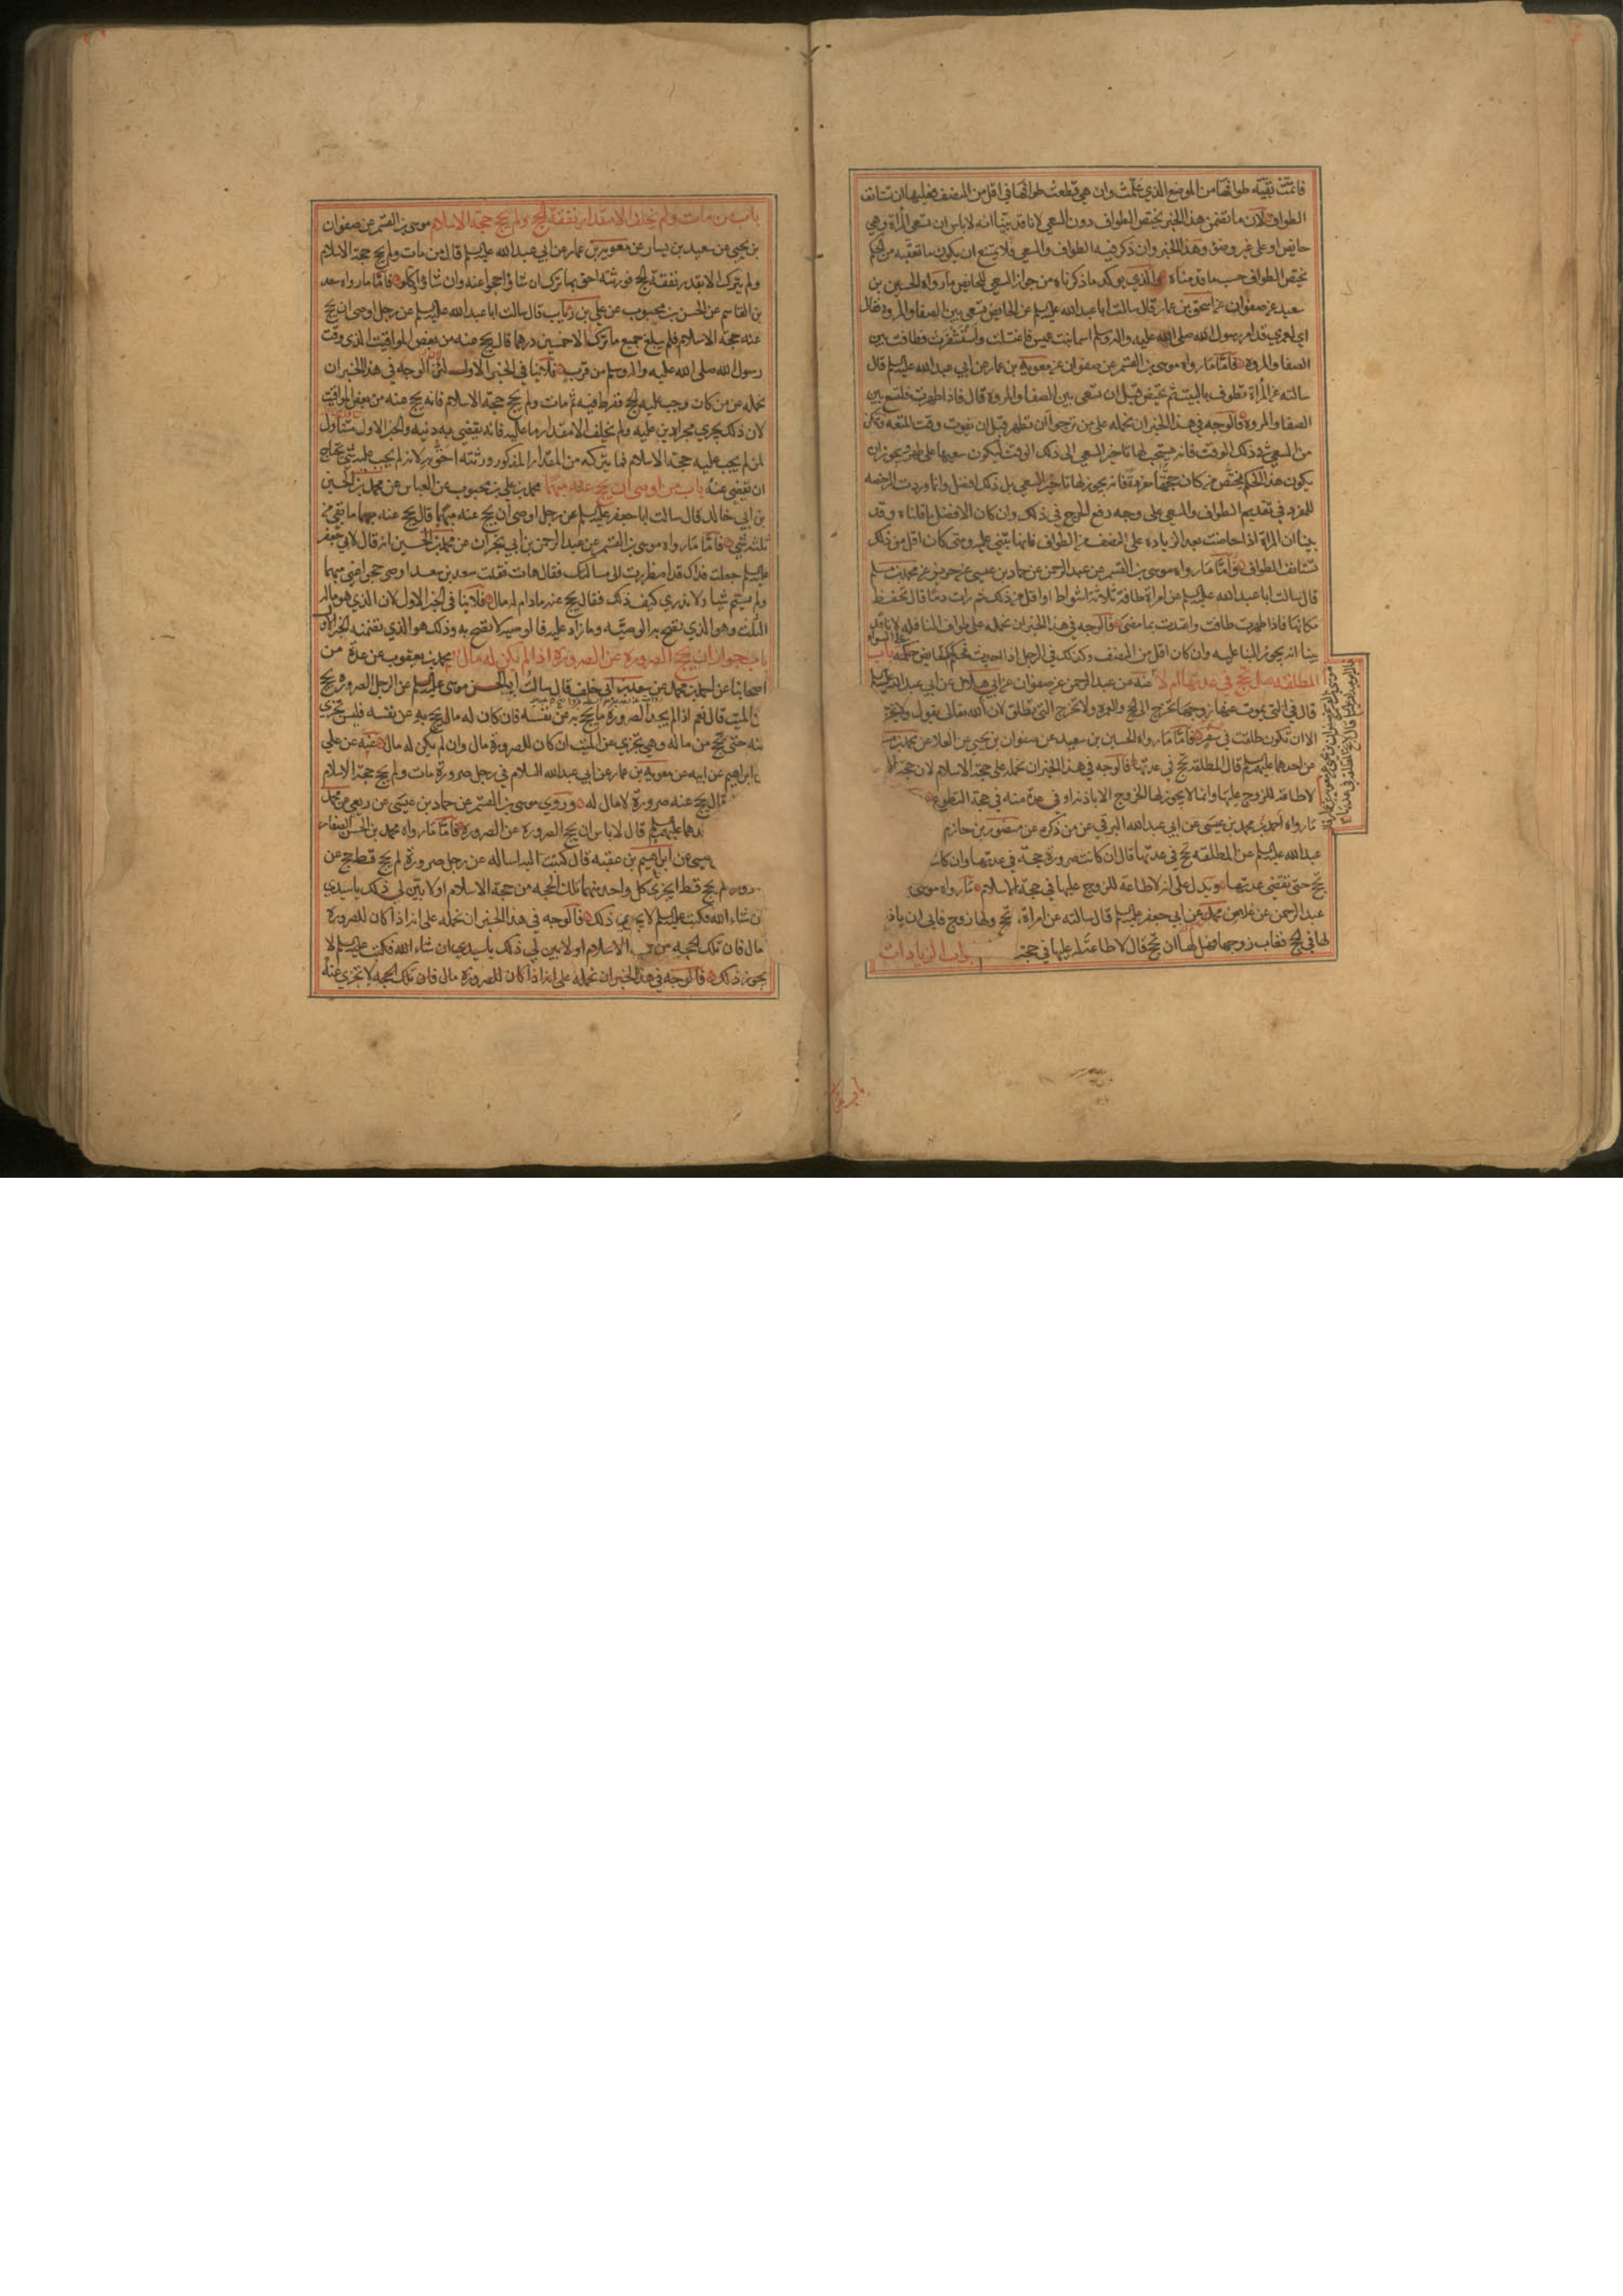 فاتمت بقية طوافها من الموضع الذي علمت وان هي قطعت طوافها في اقل من النصف فعليها ان تستانف
الطواف لان ما تضمن هذا الخبر يختص الطواف دون السعي لانا قد بينا انه لا باس ان تسعى المراة وهي
حايض او على غير وضوء وهذا الخبر وان ذكر فيه الطواف والسعي فلا يمتنع ان يكون ما تعقبه من الحكم
يختص الطواف حسب ما قدمناه والذي يوكد ما ذكرناه من جواز السعي للحايض ما رواه الحسين بن
سعيد عن صفوان عن اسحق بن عمار قال سالت ابا عبد الله عليه السلم عن الحايض تسعى بين الصفا والمروة فقال
اي لعمري قد امر رسول الله صلى الله عليه واله وسلم اسما بنت عميس فاغتسلت واستثفرت وطافت بين
الصفا والمروة فاما ما رواه موسى بن القسم عن صفوان عن معوية بن عمار عن ابي عبد الله عليه السلم قال
سالته عن المراة تطوف بالبيت ثم تحيض قبل ان تسعى بين الصفا والمروة قال فاذا طهرت فلتسع بين
الصفا والمروة فالوجه في هذا الخبر ان نحمله على من ترجو ان تطهر قبل ان تفوت وقت المتعة وتمكن
من السعي في ذلك الوقت فانه يستحب لها تاخير السعي الى ذلك الوقت ليكون سعيها على طهر ويجوز ان
يكون هذا الحكم مختص من كان حجتها مفردة فانه يجوز لها تاخير السعي بل ذلك افضل وانما وردت الرخصة
للمفرد في تقديم الطواف والسعي على وجه رفع الحرج في ذلك وان كان الافضل ما قلناه وقد
بينا ان المراة اذا حاضت بعد الزيادة على النصف من الطواف فانها تبني عليه ومتى كان اقل من ذلك
تستانف الطواف واما ما رواه موسى بن القسم عن عبد الرحمن عن حماد بن عيسى عن حريز عن محمد بن مسلم
قال سالت ابا عبد الله عليه السلم عن امراة طافت ثلاثة اشواط او اقل من ذلك ثم رات دما قال تحفظ
مكانها فاذا طهرت طافت واعتدت بما مضى فالوجه في هذا الخبر ان نحمله على طواف النافلة لانا قد
بينا انه يجوز البنا عليه وان كان اقل من النصف وكذلك في الرجل اذا احدث فحكم الحايض حكمه باب
المطلقة هل تحج في عدتها ام لا عنه عن عبد الرحمن عن صفوان عن ابي هلال عن ابي عبد الله عليه السلم
قال في التي يموت عنها زوجها تخرج الى الحج والعمرة ولا تخرج التي تطلق لان الله تعالى يقول ولا يخرجن
الا ان تكون طلقت في سفر فاما ما رواه الحسين بن سعيد عن صفوان بن يحيى عن العلا عن محمد بن
عن احدهما عليهما السلم قال المطلقة تحج في عدتها فالوجه في هذا الخبر ان نحمله على حجة الاسلام لان حجة
لا طاعة للزوج عليها وانما لا يجوز لها الخروج الا باذنه او في عدة منه في حجة التطوع
ما رواه احمد بن محمد بن عيسى عن ابي عبد الله البرقي عن من ذكره عن منصور بن حازم
عبد الله عليه السلم عن المطلقة تحج في عدتها قال ان كانت صرورة حجت في عدتها وان كانت
تحج حتى تقضي عدتها ويدل على انه لا طاعة للزوج عليها في حجة الاسلام ما رواه موسى
عبد الرحمن عن علا عن محمد عن ابي جعفر عليه السلم قال سالته عن امراة لم تحج ولها زوج فابى ان ياذن
لها في الحج فغاب زوجها فهل لها ان تحج قال لا طاعة له عليها في حجة ابواب الزيادات
باب من مات ولم يخلف الا مقدار نفقة الحج ولم يحج حجة الاسلام موسى بن القسم عن صفوان
بن يحيى عن سعيد بن يسار عن معوية بن عمار عن ابي عبد الله عليه السلم قال من مات ولم يحج حجة الاسلام
ولم يترك الا بقدر نفقة الحج فورثته احق بما ترك ان شاؤا حجوا عنه وان شاؤا اكلوا فاما ما رواه سعد
بن القاسم عن الحسن بن محبوب عن علي بن رئاب قال سالت ابا عبد الله عليه السلم عن رجل اوصى ان يحج
عنه حجة الاسلام فلم يبلغ جميع ما ترك الا خمسين درهما قال يحج عنه من بعض المواقيت الذي وقت
رسول الله صلى الله عليه واله وسلم من قرب فلا ينافي الخبر الاول لان الوجه في هذا الخبر ان
نحمله عن من كان وجب عليه الحج ففرط فيه ثم مات ولم يحج حجة الاسلام فانه يحج عنه من بعض المواقيت
لان ذلك يجري مجرى دين عليه ولم يخلف الا مقدار ما عليه فانه يقضى به دينه والخبر الاول متناول
لمن لم يجب عليه حجة الاسلام فما يتركه من المقدار المذكور ورثته احق به لانه لم يجب عليه شي يحتاج
ان يقضى عنه باب من اوصى ان يحج عنه مبهما محمد بن علي بن محبوب عن العباس عن محمد بن الحسين
بن ابي خالد قال سالت ابا جعفر عليه السلم عن رجل اوصى ان يحج عنه مبهما قال يحج عنه مهما ما بقي من
ثلثه شي فاما ما رواه موسى بن القسم عن عبد الرحمن بن ابي نجران عن محمد بن الحسين انه قال لابي جعفر
عليه السلم جعلت فداك قد اضطررت الى مسالتك فقال هات فقلت سعد بن سعد اوصى حجوا عني مبهما
ولم يسم شيا ولا ندري كيف ذلك فقال يحج عنه ما دام له مال فلا ينافي الخبر الاول لان الذي هو مال
الثلث وهو الذي تصح به الوصية وما زاد عليه فالوصية لا تصح به وذلك هو الذي تضمنه الخبر الاول
باب جواز ان يحج الصرورة عن الصرورة اذا لم يكن له مال محمد بن يعقوب عن عدة من
اصحابنا عن احمد بن محمد عن سعد بن ابي خلف قال سالت ابا الحسن موسى عليه السلم عن الرجل الصرورة يحج
عن الميت قال نعم اذا لم يجد الصرورة ما يحج به عن نفسه فان كان له مال يحج به عن نفسه فليس يجزي
عنه حتى يحج من ماله وهي تجزي عن الميت ان كان للصرورة مال وان لم يكن له مال عنه عن علي
بن ابراهيم عن ابيه عن معوية بن عمار عن ابي عبد الله السلام في رجل صرورة مات ولم يحج حجة الاسلام
قال يحج عنه صرورة لا مال له وروى موسى بن القسم عن حماد بن عيسى عن ربعي عن محمد
عليهما السلم قال لا باس ان يحج الصرورة عن الصرورة فاما ما رواه محمد بن الحسن الصفار
عن ابراهيم بن عقبة قال كتبت اليه اساله عن رجل صرورة لم يحج قط حج عن
لم يحج قط ايجزي كل واحد منهما تلك الحجة من حجة الاسلام او لا بين لي ذلك يا سيدي
ان شاء الله فكتب عليه السلم لا يجزي ذلك فالوجه في هذا الخبر ان نحمله على انه اذا كان للصرورة
مال فان تلك الحجة من الاسلام او لا بين لي ذلك يا سيدي ان شاء الله فكتب عليه السلم لا
يجوز ذلك فالوجه في هذا الخبر ان نحمله على انه اذا كان للصرورة مال فان تلك الحجة لا تجزي عنه